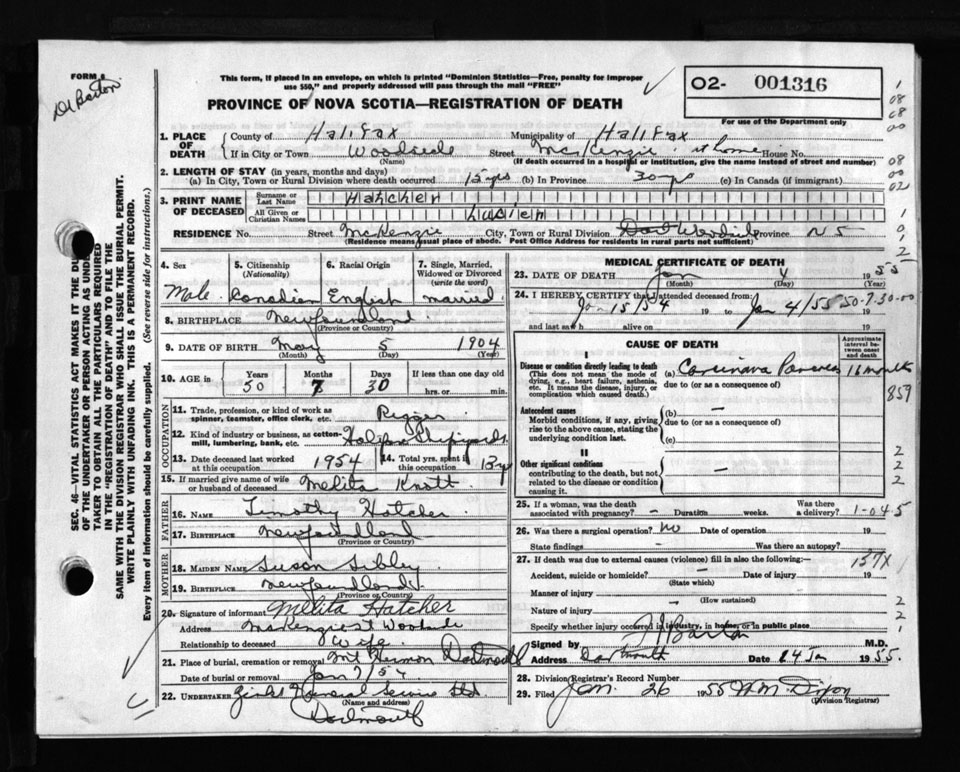 FORM 6
Dr Barton
This form, if placed in an envelope, on which is printed "Dominion Statistics—Free, penalty for improper
use $50," and properly addressed will pass through the mail "FREE"
O2- 001316
For use of the Department only
PROVINCE OF NOVA SCOTIA—REGISTRATION OF DEATH
1. PLACE OF DEATH County of Halifax Municipality of Halifax
If in City or Town Woodside Street McKenzie at home House No.
(If death occurred in a hospital or institution, give the name instead of street and number)
2. LENGTH OF STAY (in years, months and days)
(a) In City, Town or Rural Division where death occurred 15 yrs (b) In Province 30 yrs (c) In Canada (if immigrant)
3. PRINT NAME OF DECEASED Surname or Last Name Hatcher
All Given or Christian Names Lucien
RESIDENCE No. Street McKenzie City, Town or Rural Division Dart Woodside Province N S
(Residence means usual place of abode. Post Office Address for residents in rural parts not sufficient)
4. Sex Male
5. Citizenship (Nationality) Canadian
6. Racial Origin English
7. Single, Married, Widowed or Divorced (write the word) married
8. BIRTHPLACE Newfoundland
(Province or Country)
9. DATE OF BIRTH May 5 1904
(Month) (Day) (Year)
10. AGE in Years 50 Months 7 Days 30 If less than one day old
hrs. or min.
OCCUPATION
11. Trade, profession, or kind of work as spinner, teamster, office clerk, etc. Rigger
12. Kind of industry or business, as cotton-mill, lumbering, bank, etc. Halifax Shipyards
13. Date deceased last worked at this occupation 1954
14. Total yrs. spent in this occupation 13 y
15. If married give name of wife or husband of deceased Melita Knott
FATHER
16. NAME Timothy Hatcher
17. BIRTHPLACE Newfoundland
(Province or Country)
MOTHER
18. MAIDEN NAME Susan Sibley
19. BIRTHPLACE Newfoundland
(Province or Country)
20. Signature of informant Melita Hatcher
Address McKenzie st Woodside
Relationship to deceased Wife
21. Place of burial, cremation or removal Mt Hermon Dartmouth
Date of burial or removal Jan 7/54
22. UNDERTAKER Funeral Service Ltd
(Name and address)
Dartmouth
MEDICAL CERTIFICATE OF DEATH
23. DATE OF DEATH Jan 4 1955
(Month) (Day) (Year)
24. I HEREBY CERTIFY that I attended deceased from:
Jan 15/54 19 to Jan 4/55 50-7-30-00
and last saw h alive on 19
CAUSE OF DEATH
Approximate interval between onset and death
I
Disease or condition directly leading to death (a) Carcinoma Pancreas 16 months
(This does not mean the mode of dying, e.g., heart failure, asthenia, etc. It means the disease, injury, or complication which caused death.)
due to (or as a consequence of)
859
Antecedent causes
Morbid conditions, if any, giving rise to the above cause, stating the underlying condition last.
(b) —
due to (or as a consequence of)
(c)
II
Other significant conditions
contributing to the death, but not related to the disease or condition causing it.
—
25. If a woman, was the death associated with pregnancy? – Duration weeks. Was there a delivery? 1-045
26. Was there a surgical operation? No Date of operation 19
State findings – Was there an autopsy?
27. If death was due to external causes (violence) fill in also the following:— 157X
Accident, suicide or homicide? – Date of injury 19
(State which)
Manner of injury –
(How sustained)
Nature of injury
Specify whether injury occurred in industry, in home, or in public place
Signed by Barton M.D.
Address Dartmouth Date 24 Jan 1955.
28. Division Registrar's Record Number
29. Filed Jan. 26 1955 W. M. Dixon
(Division Registrar)
SEC. 46—VITAL STATISTICS ACT MAKES IT THE DUTY
OF THE UNDERTAKER OR PERSON ACTING AS UNDERTAKER
TO OBTAIN ALL THE PARTICULARS REQUIRED
IN THE "REGISTRATION OF DEATH" AND TO FILE THE
SAME WITH THE DIVISION REGISTRAR WHO SHALL ISSUE THE BURIAL PERMIT.
WRITE PLAINLY WITH UNFADING INK. THIS IS A PERMANENT RECORD.
Every item of information should be carefully supplied. (See reverse side for instructions.)
1
08
08
00
08
00
02
1
0
1
2
2
2
2
2
2